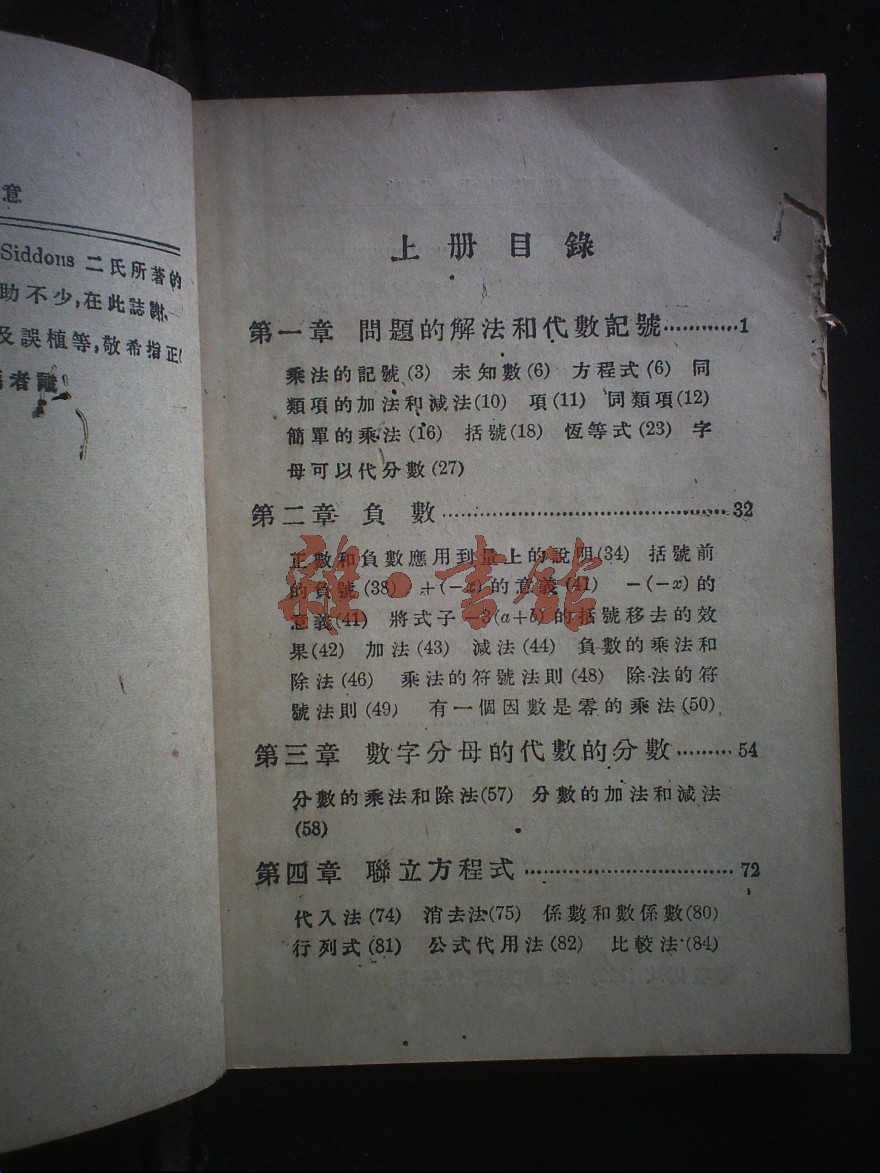 意
Siddons 二氏所著的
助不少,在此誌謝.
及誤植等,敬希指正!
者識
上册目錄
第一章 問題的解法和代數記號…………1
乘法的記號(3) 未知數(6) 方程式(6) 同
類項的加法和減法(10) 項(11) 同類項(12)
簡單的乘法(16) 括號(18) 恆等式(23) 字
母可以代分數(27)
第二章 負 數…………………………………32
正數和負數應用到量上的說明(34) 括號前
的負號(38) +(-x)的意義(41) -(-x)的
意義(41) 將式子-3(a+b)的括號移去的效
果(42) 加法(43) 減法(44) 負數的乘法和
除法(46) 乘法的符號法則(48) 除法的符
號法則(49) 有一個因數是零的乘法(50)
第三章 數字分母的代數的分數………54
分數的乘法和除法(57) 分數的加法和減法
(58)
第四章 聯立方程式…………………………72
代入法(74) 消去法(75) 係數和數係數(80)
行列式(81) 公式代用法(82) 比較法(84)
雜·書館